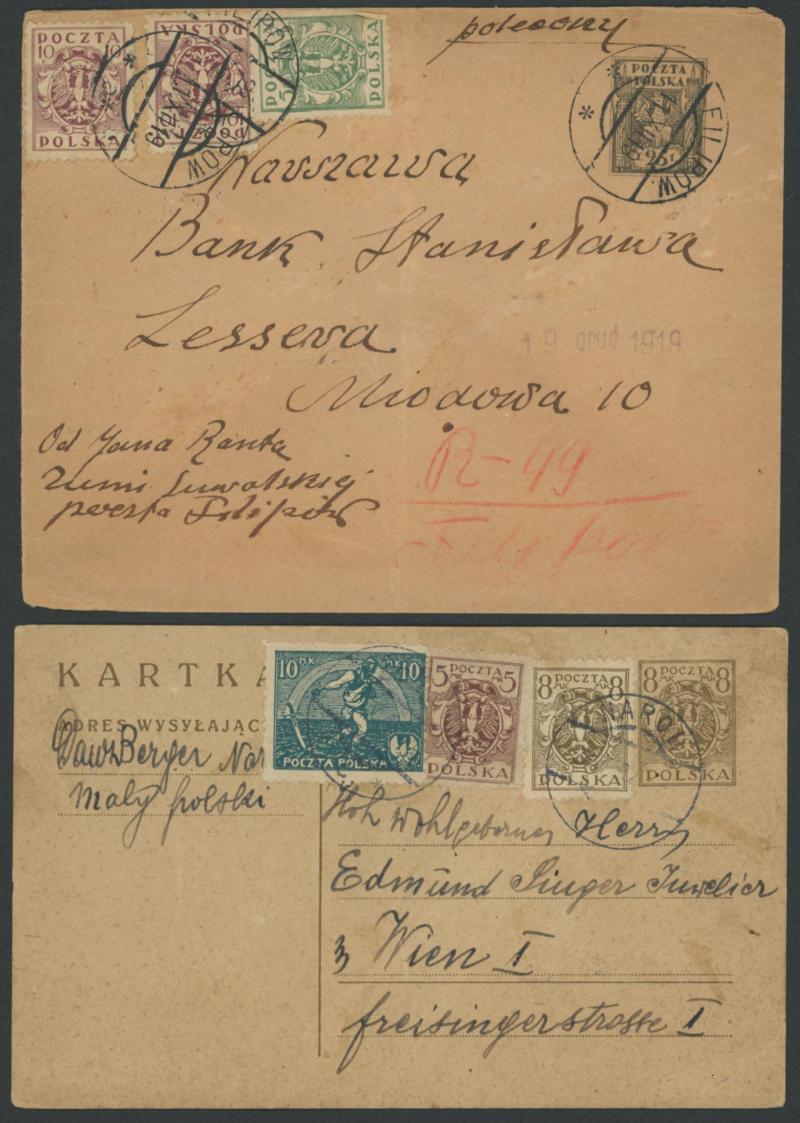 POCZTA
10 10
POLSKA
POCZTA
10
POLSKA
5
POLSKA
polecony
POCZTA
POLSKA
25 f
FILIPÓW
FILIPÓW
Warszawa
Bank Stanisława
Lesseva
Miodowa 10
19 grud 1919
Od Jana Ranta
Suwalskiej
poczta Filipów
R-49
KARTKA
ADRES WYSYŁAJĄC
Berger Nar
Mały polski
10 MK 10
POCZTA POLSKA
5 POCZTA 5
MK MK
POLSKA
8 POCZTA 8
MK MK
POLSKA
8 POCZTA 8
MK MK
POLSKA
NAROL
Hoh Wohlgeborner Herrn
Edmund Singer Juwelier
Wien I
Freisingerstrasse I